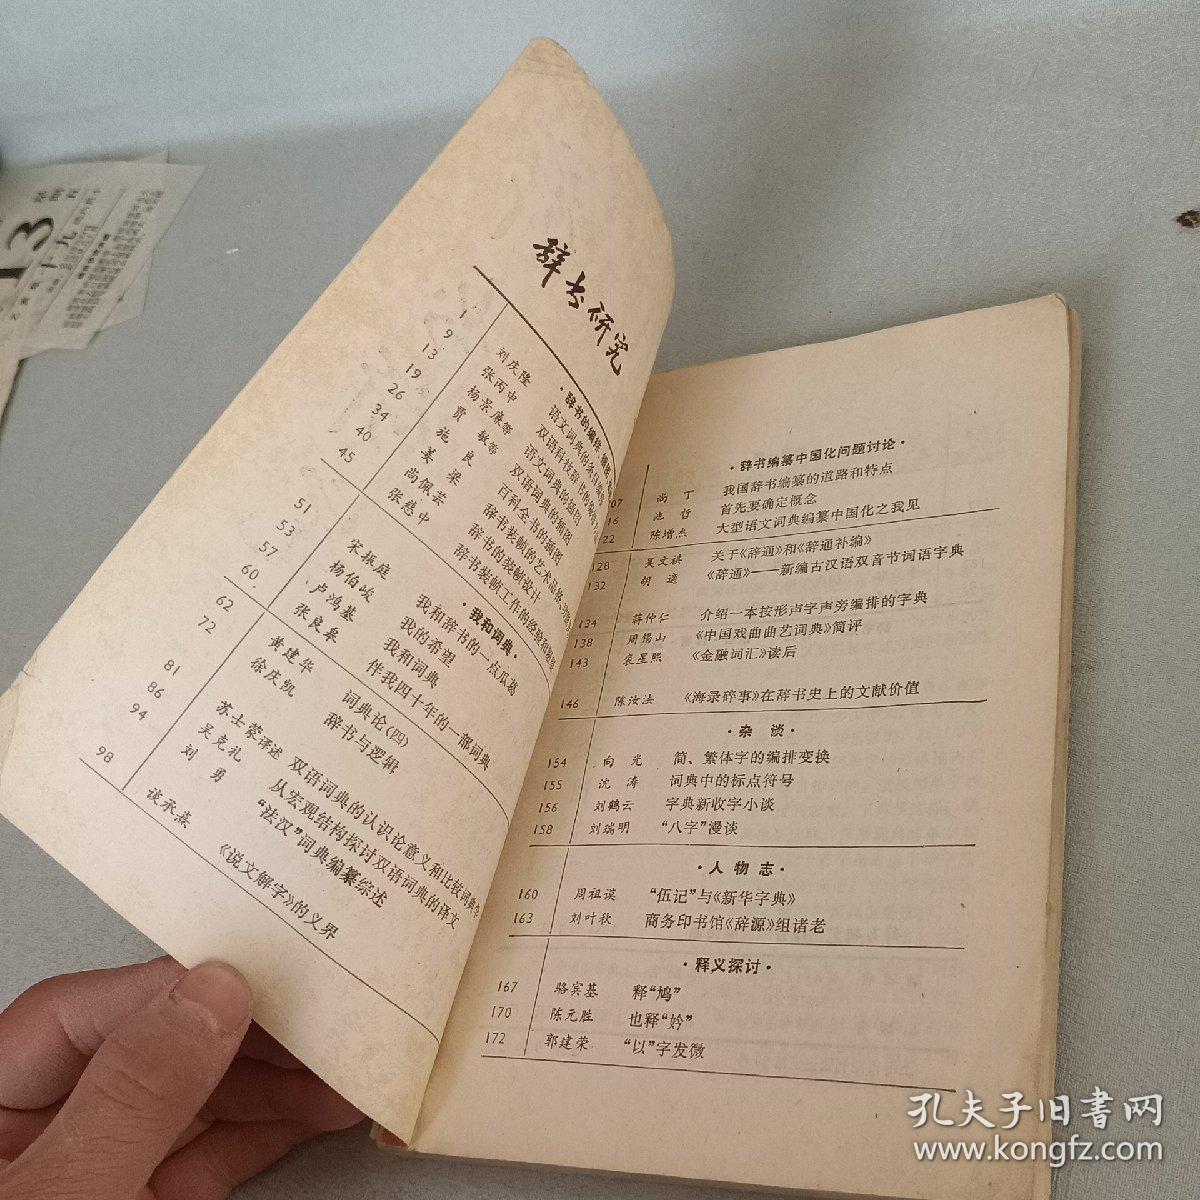 辞书研究
1 刘庆隆 语文词典的条目编排
9 张丙中 双语科技辞书的编排
13 杨景廉等 语文词典的插图
19 贾敏等 双语词典的插图
26 施良 百科全书的插图
34 姜梁 辞书装帧的艺术品格
40 尚佩芸 辞书的装帧设计
45 张慈中 辞书装帧工作的经验和
·我和词典·
51 宋振庭 我和辞书的一点瓜葛
53 杨伯峻 我的希望
57 卢鸿基 我和词典
60 张良皋 伴我四十年的一部词典
62 黄建华 词典论(四)
72 徐庆凯 辞书与逻辑
81 苏士蒙译述 双语词典的认识论意义和比较词典学
86 吴克礼 从宏观结构探讨双语词典的译文
94 刘勇 “法汉”词典编纂综述
98 谈承熹 《说文解字》的义界
·辞书编纂中国化问题讨论·
07 尚丁 我国辞书编纂的道路和特点
16 池哲 首先要确定概念
22 陈增杰 大型语文词典编纂中国化之我见
128 吴文祺 关于《辞通》和《辞通补编》
132 胡適 《辞通》——新编古汉语双音节词语字典
134 蒋仲仁 介绍一本按形声字声旁编排的字典
138 周锡山 《中国戏曲曲艺词典》简评
143 袁星熙 《金融词汇》读后
146 陈汝法 《海录碎事》在辞书史上的文献价值
·杂谈·
154 向光 简、繁体字的编排变换
155 沈涛 词典中的标点符号
156 刘鹤云 字典新收字小谈
158 刘瑞明 “八字”漫谈
·人物志·
160 周祖谟 “伍记”与《新华字典》
163 刘叶秋 商务印书馆《辞源》组诸老
·释义探讨·
167 骆宾基 释“鸠”
170 陈元胜 也释“妗”
172 郭建荣 “以”字发微
13
孔夫子旧書网
www.kongfz.com